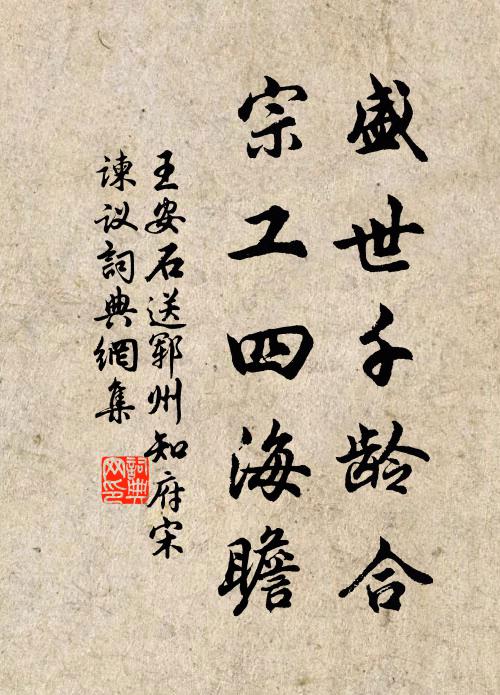 盛世千龄合
宗工四海瞻
王安石送郓州知府宋
谏议詞典網集
詞典网印